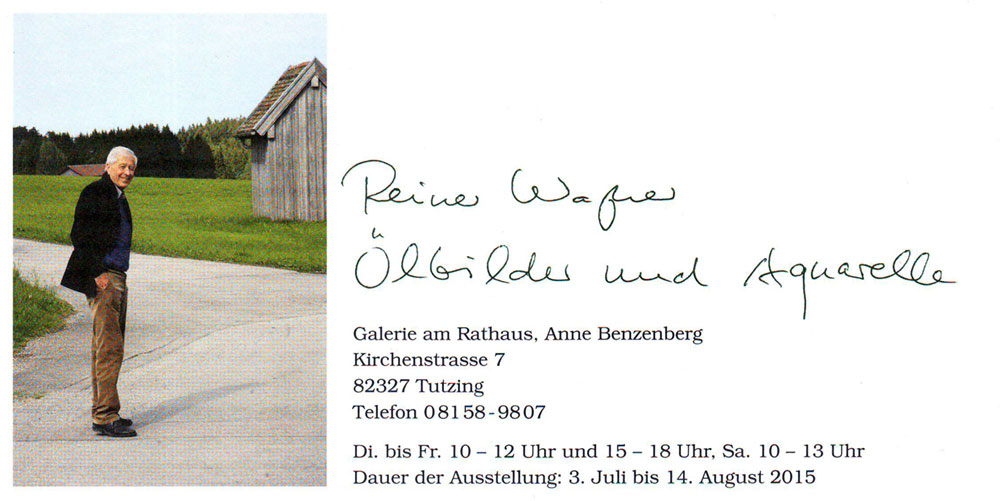 Reiner Wagner
Ölbilder und Aquarelle
Galerie am Rathaus, Anne Benzenberg
Kirchenstrasse 7
82327 Tutzing
Telefon 08158-9807
Di. bis Fr. 10 – 12 Uhr und 15 – 18 Uhr, Sa. 10 – 13 Uhr
Dauer der Ausstellung: 3. Juli bis 14. August 2015